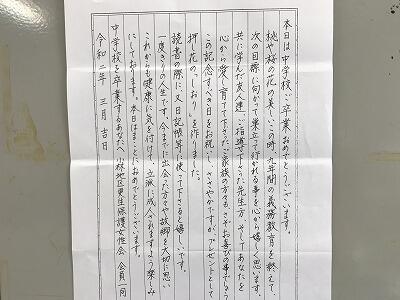 本日は中学校ご卒業おめでとうございます。
桃や桜の花の美しいこの時、九年間の義務教育を終えて、
次の目標に向かって巣立って行かれる事を心から嬉しく思います。
共に学んだ友人達、ご指導下さった先生方、そしてあなたを
心から愛し育てて下さったご家族の方々もさぞお喜びの事でしょう
この記念すべき日をお祝いし、ささやかですが、プレゼントとして
押し花の「しおり」を作りました。
読書の際に、又日記帳等に使って下さると嬉しいです。
一度きりの人生です。今までに出会った方々や故郷を大切に思い
これからも健康に気を付けて、立派に成人されますよう楽しみ
にしております。本日はまことにおめでとうございます。
令和二年 三月 吉日
中学校を卒業するあなたへ 小林地区更生保護女性会 会員一同